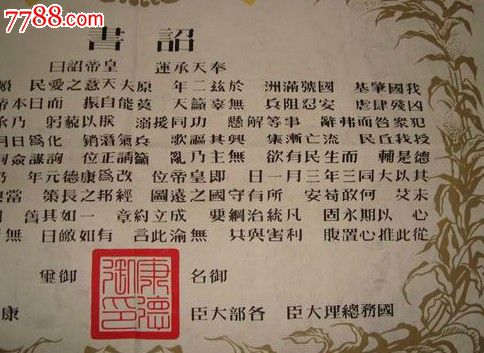 7788.com
詔書
奉天承運 皇帝詔曰
我國肇基 國號滿洲 於茲二年 原夫天意之愛民 順
凶殘肆虐 安忍阻兵 無辜籲天 莫能自振 而日本帝
犯衆咎而弗辭 事等解懸 功同援溺 朕以藐躬 乃承
授我丘民 流亡漸集 興其謳歌 兵氣潛銷 化爲日月
德是輔 而生民有欲 無主乃亂 籲請正位 詢謀僉
其以大同三年三月一日 即皇帝位 改爲康德元年 仍
未艾 何敢苟安 所有守國之遠圖 經邦之長策 當與
心 以期永固 凡統治綱要 成立約章 一如其舊
從此推心置腹 利害與共 無渝此言 有如皦日 無
御名 御璽
康德御印
國務總理大臣 各部大臣 康